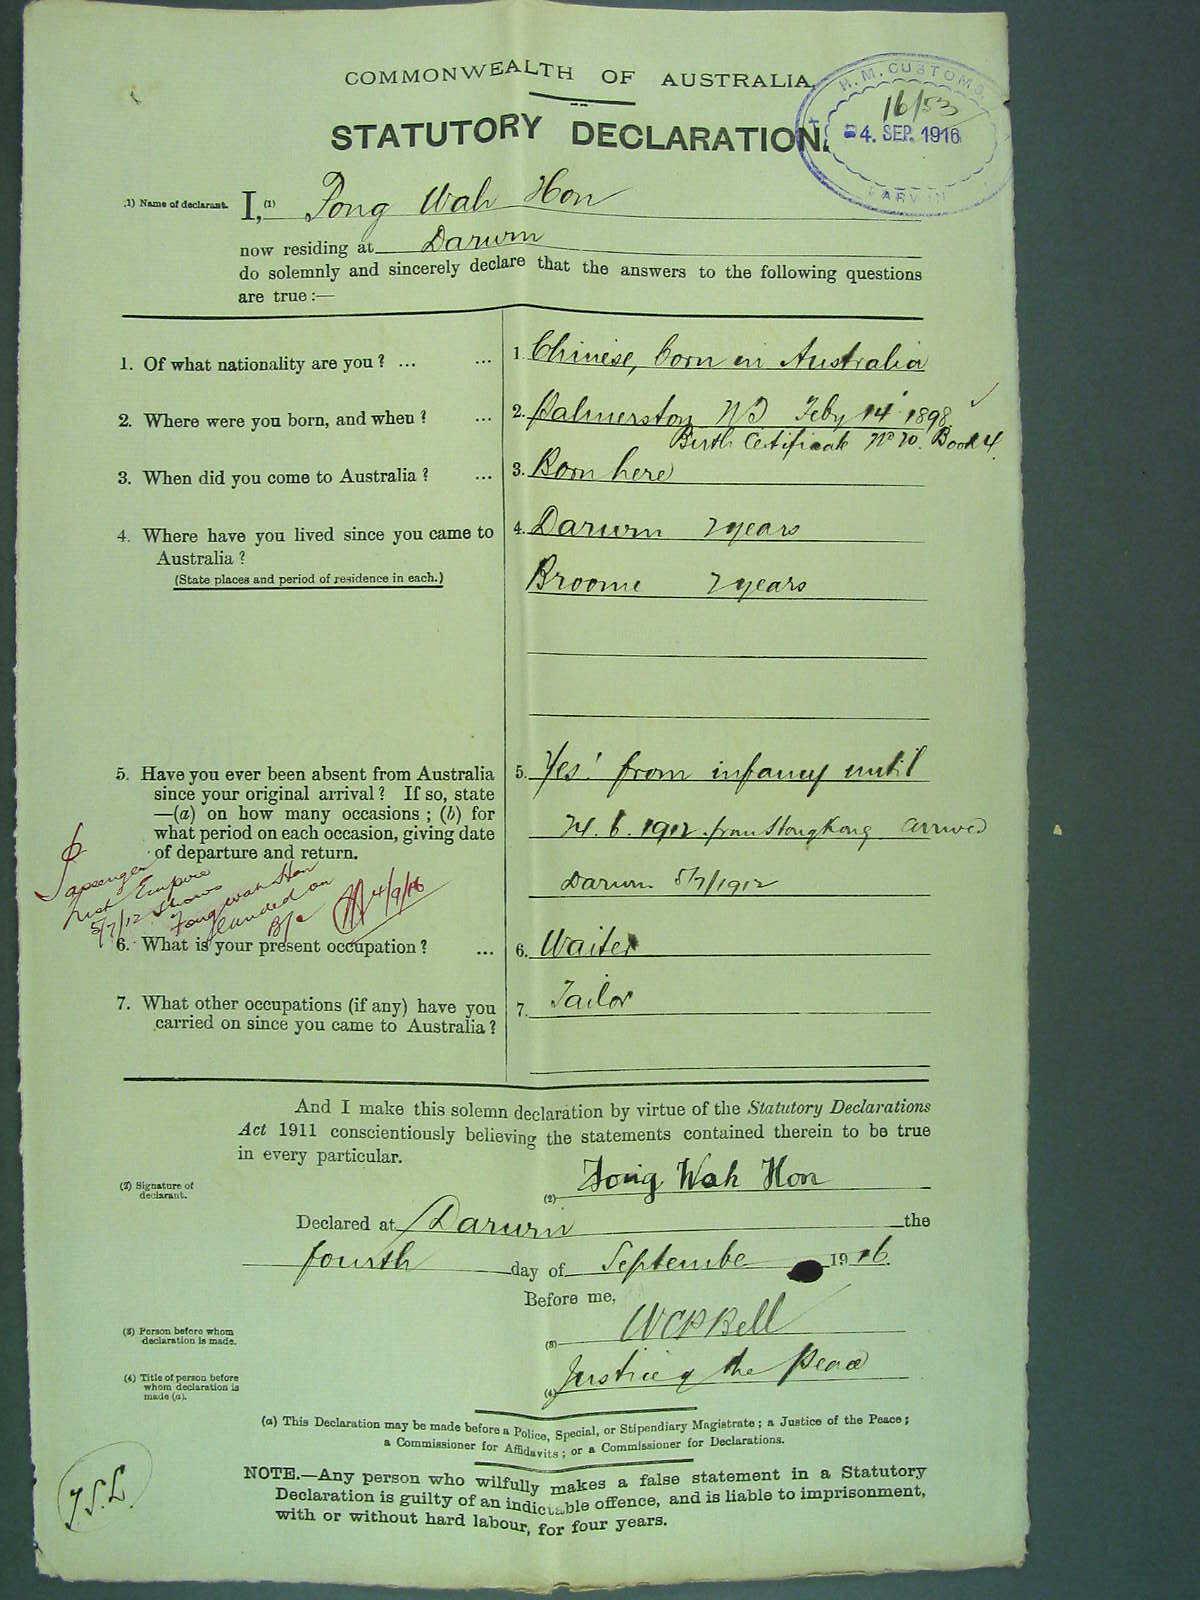 COMMONWEALTH OF AUSTRALIA.
H. M. CUSTOMS.
16/53
4. SEP. 1916
DARWIN
STATUTORY DECLARATION.
(1) Name of declarant. I, (1) Fong Wah Hon
now residing at Darwin
do solemnly and sincerely declare that the answers to the following questions
are true:—
1. Of what nationality are you? ... ... 1. Chinese, born in Australia
2. Where were you born, and when? ... 2. Palmerston NT Feby 14 1898
Birth Certificate No 70. Book 4.
3. When did you come to Australia? ... 3. Born here
4. Where have you lived since you came to 4. Darwin 2 years
Australia?
(State places and period of residence in each.)
Broome 2 years
5. Have you ever been absent from Australia 5. Yes! from infancy until
since your original arrival? If so, state
—(a) on how many occasions; (b) for
what period on each occasion, giving date 24. 6. 1912 from Hongkong arrived
of departure and return.
Darwin 5/7/1912
Passenger
List Empire
5/7/12 shows
Fong Wah Hon
landed on
B/c 4/9/16
6. What is your present occupation? ... 6. Waiter
7. What other occupations (if any) have you 7. Tailor
carried on since you came to Australia?
And I make this solemn declaration by virtue of the Statutory Declarations
Act 1911 conscientiously believing the statements contained therein to be true
in every particular.
(2) Signature of
declarant.
(2) Fong Wah Hon
Declared at Darwin the
fourth day of Septembe 1916.
Before me,
(3) Person before whom
declaration is made.
(3) WCP Bell
(4) Title of person before
whom declaration is
made (a).
(4) Justice of the Peace
(a) This Declaration may be made before a Police, Special, or Stipendiary Magistrate; a Justice of the Peace;
a Commissioner for Affidavits; or a Commissioner for Declarations.
NOTE.—Any person who wilfully makes a false statement in a Statutory
Declaration is guilty of an indictable offence, and is liable to imprisonment,
with or without hard labour, for four years.